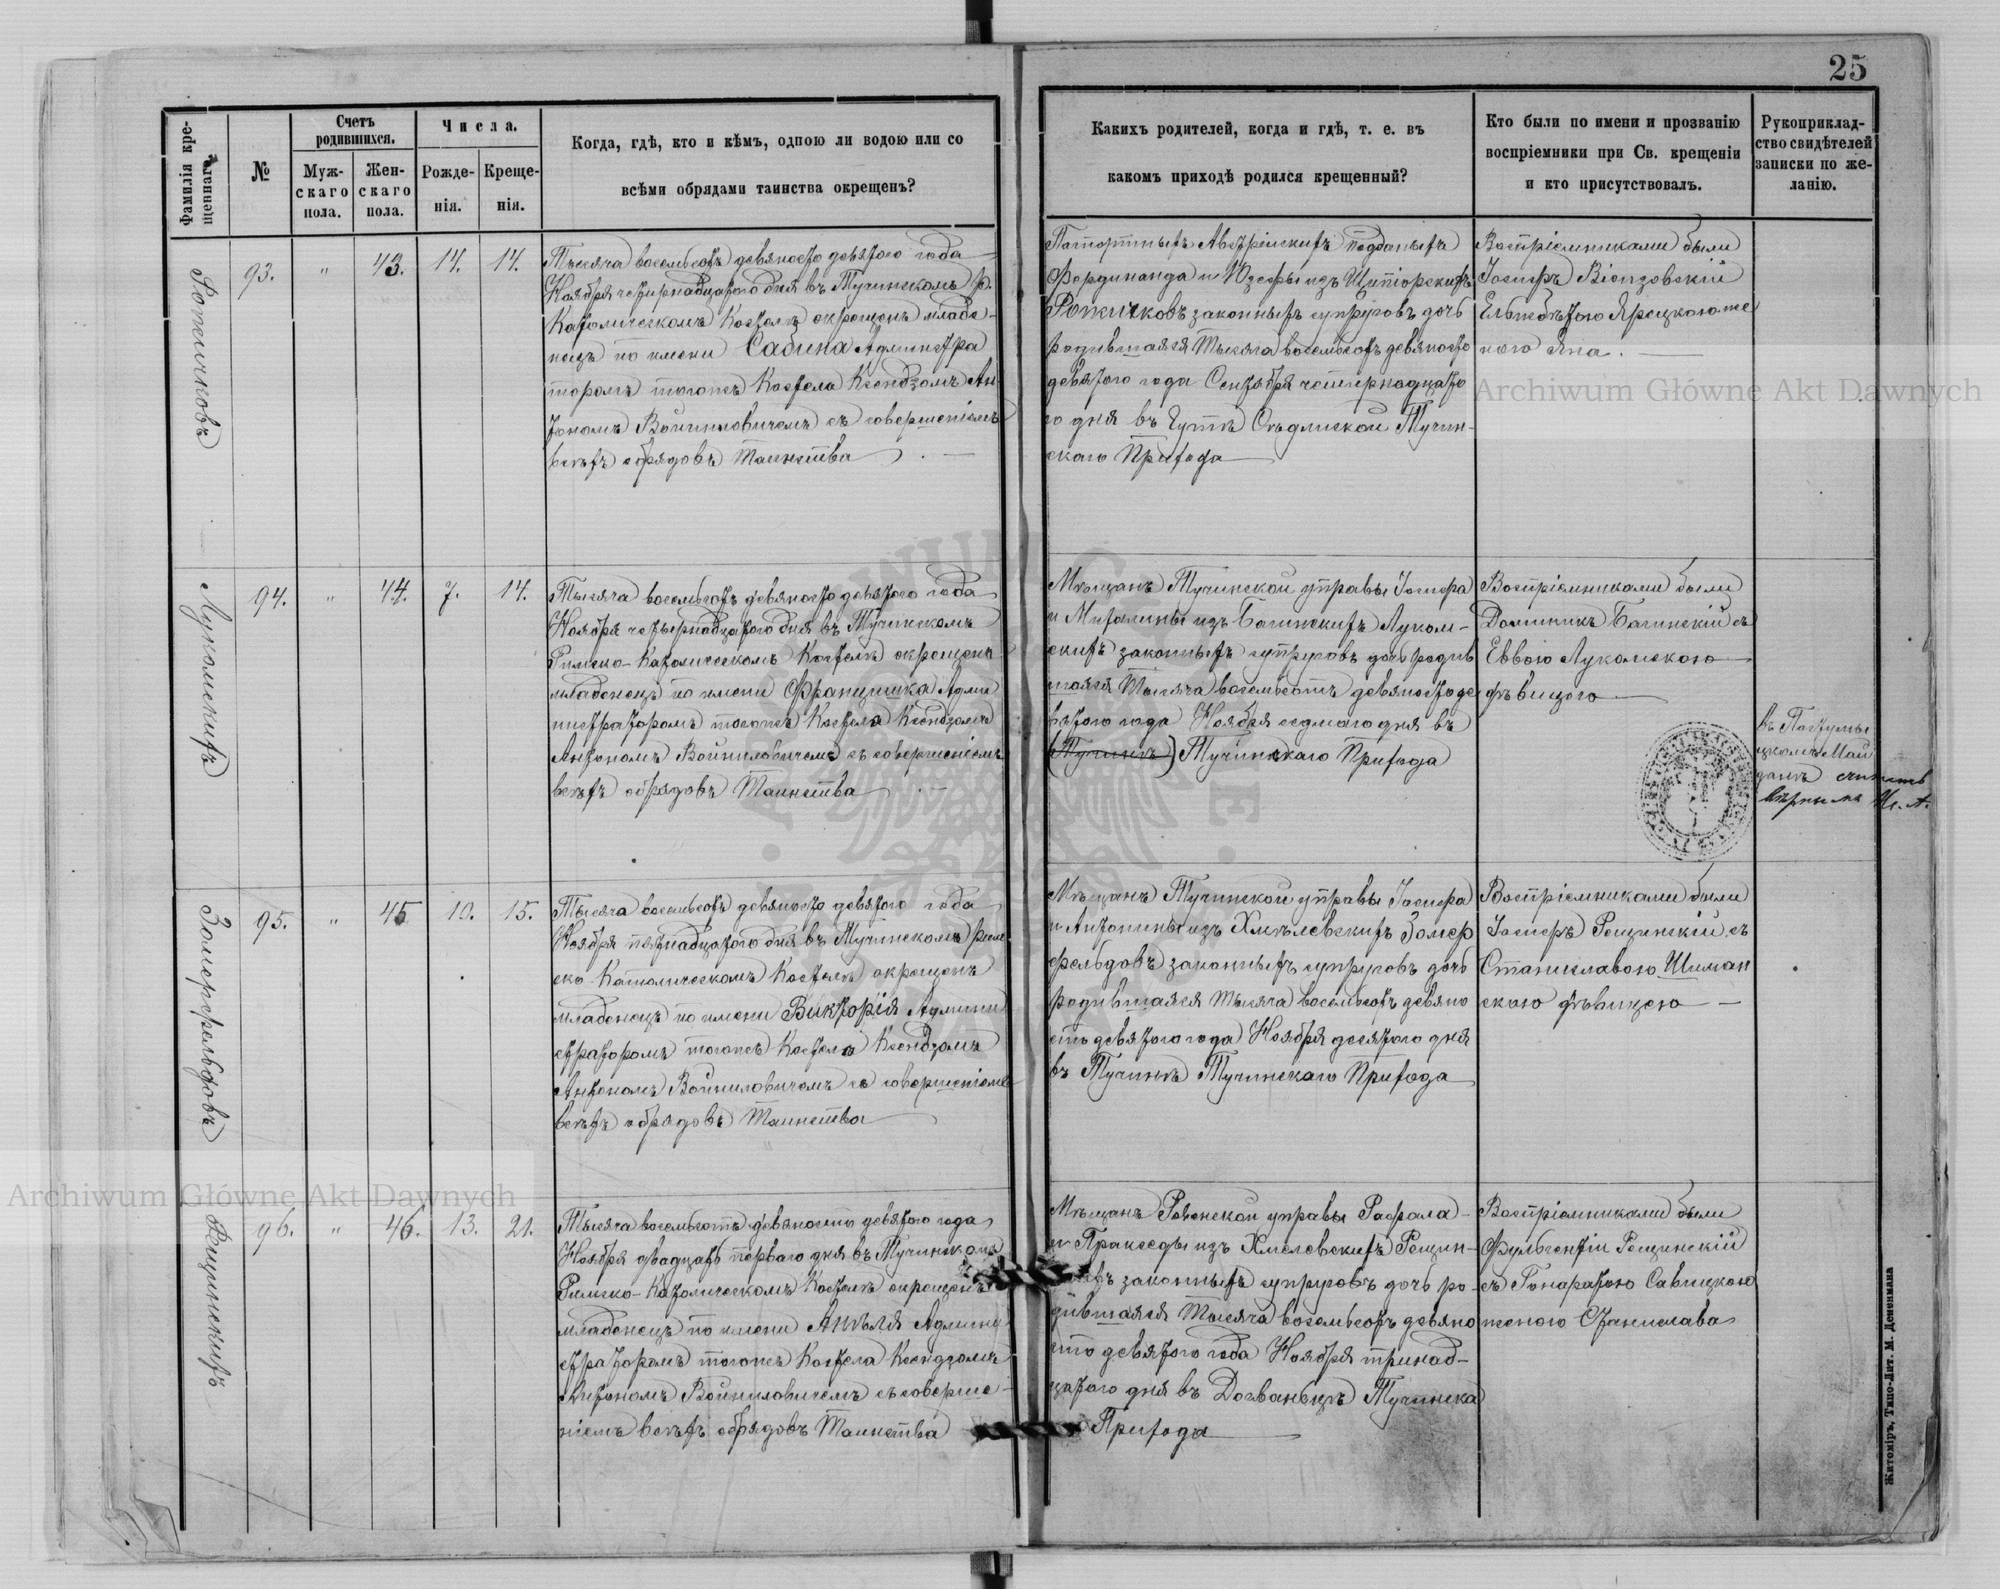 25
Фамилія кре-
щеннаго.
№
Счетъ
родившихся.
Муж-
скаго
пола.
Жен-
скаго
пола.
Числа.
Рожде-
нія.
Креще-
нія.
Когда, гдѣ, кто и кѣмъ, одною ли водою или со
всѣми обрядами таинства окрещенъ?
Какихъ родителей, когда и гдѣ, т. е. въ
какомъ приходѣ родился крещенный?
Кто были по имени и прозванію
воспріемники при Св. крещеніи
и кто присутствовалъ.
Рукоприклад-
ство свидѣтелей
записки по же-
ланію.
93.
"
43.
14.
14.
Тысяча восемьсотъ девяносто девятого года
Ноября четырнадцатого дня въ Тучинскомъ Р.
Католическомъ Костелѣ окрещенъ младе-
нецъ по имени Сабина Администра
торомъ тогоже Костела Ксендзомъ Ан
тономъ Войниловичемъ съ совершеніемъ
всѣхъ обрядовъ Таинства
Австрійскихъ подданыхъ
Фердинанда и Юзефы изъ
законныхъ супруговъ дочь
родившаяся Тысяча восемьсотъ девяносто
девятого года Сентября четырнадцато
го дня въ Гутѣ Тучин-
скаго Прихода
Воспріемниками были
Іосифъ
Яна.
Лукомскихъ
94.
"
44.
7.
14.
Тысяча восемьсотъ девяносто девятого года
Ноября четырнадцатого дня въ Тучинскомъ
Римско-Католическомъ Костелѣ окрещенъ
младенецъ по имени Францишка Адми
нистраторомъ тогоже Костела Ксендзомъ
Антономъ Войниловичемъ съ совершеніемъ
всѣхъ обрядовъ Таинства
Мѣщанъ Тучинской управы Іосифа
и Михалины изъ Багинскихъ Луком-
скихъ законныхъ супруговъ дочь родив
шаяся Тысяча восемьсотъ девяносто де
вятого года Ноября седмаго дня въ
(Тучинѣ) Тучинскаго Прихода
Воспріемниками были
Доминикъ Багинскій съ
Еввою Лукомскою
дѣвицою
считать
вѣрнымъ
Зомерфельдовъ
95.
"
45
10.
15.
Тысяча восемьсотъ девяносто девятого года
Ноября пятнадцатого дня въ Тучинскомъ Рим
ско-Католическомъ Костелѣ окрещенъ
младенецъ по имени Викторія Админи
страторомъ тогоже Костела Ксендзомъ
Антономъ Войниловичемъ съ совершеніемъ
всѣхъ обрядовъ Таинства
Мѣщанъ Тучинской управы Іосифа
и Антонины изъ Хмѣлевскихъ Зомер
фельдовъ законныхъ супруговъ дочь
родившаяся Тысяча восемьсотъ девяно
сто девятого года Ноября десятого дня
въ Тучинѣ Тучинскаго Прихода
Воспріемниками были
Іосифъ Рещинскій съ
Станиславою Шиман
скою дѣвицею
Рещинскихъ
96.
"
46.
13.
21.
Тысяча восемьсотъ девяносто девятого года
Ноября двадцать перваго дня въ Тучинскомъ
Римско-Католическомъ Костелѣ окрещенъ
младенецъ по имени Анѣля Админи
страторомъ тогоже Костела Ксендзомъ
Антономъ Войниловичемъ съ соверше-
ніемъ всѣхъ обрядовъ Таинства
Мѣщанъ Ровенской управы Рафала
и Пракседы изъ Хмелевскихъ Рещин-
законныхъ супруговъ дочь ро-
дившаяся Тысяча восемьсотъ девяно
сто девятого года Ноября тринад-
цатого дня въ Тучинска
Прихода
Воспріемниками были
Фульгентій Рещинскій
съ Гонаратою Савицкою
женою Станислава
Житоміръ, Типо-Лит. М. Дененмана
Archiwum Główne Akt Dawnych
Archiwum Główne Akt Dawnych